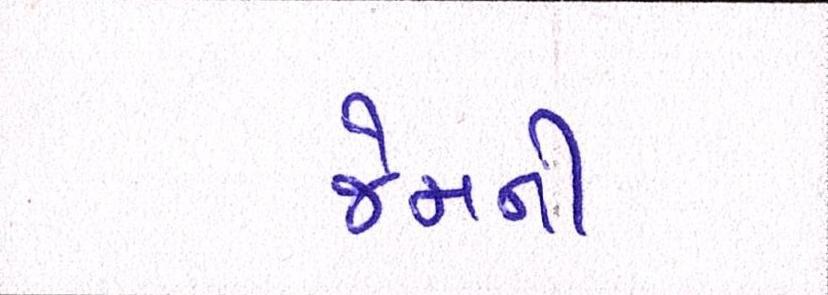 જેમની